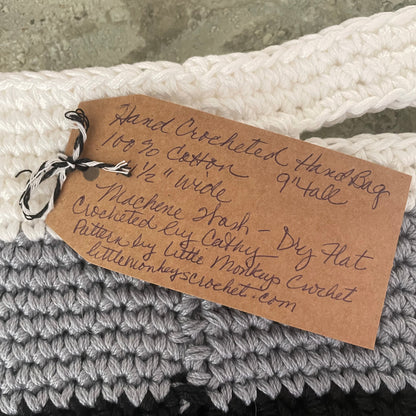 Hand Crocheted HandBag
100% Cotton 9" tall
1/2" wide
Machene Wash - Dry Flat
Crocheted by Cathy
Pattern by Little Monkeys Crochet
littlemonkeyscrochet.com